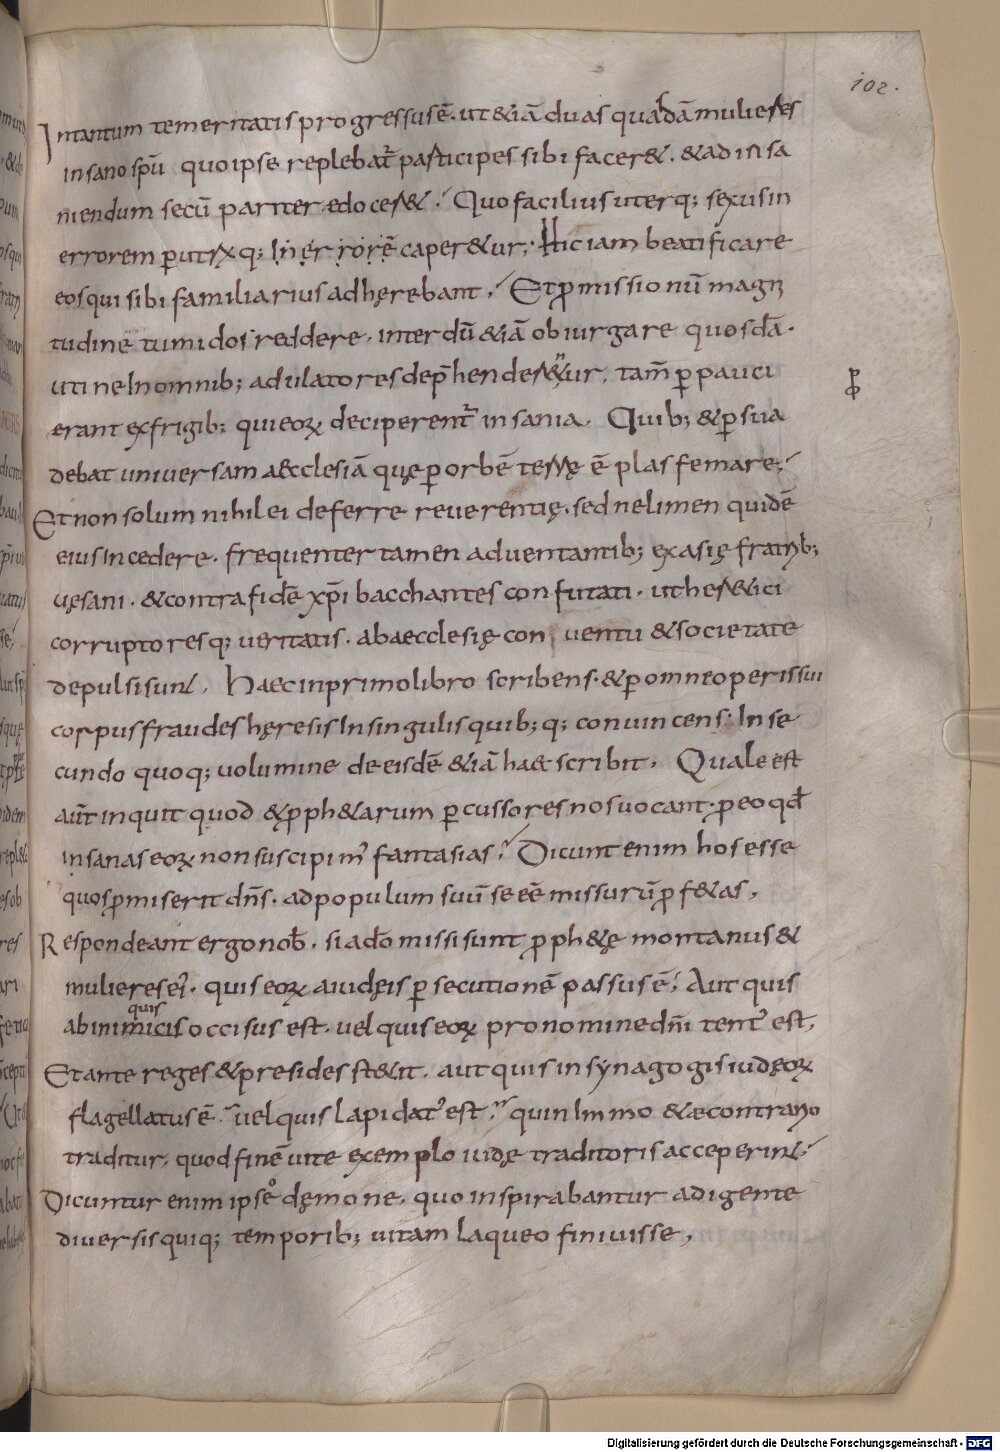 102.
Intantum temeritatis progressus ē. ut &iā duas quasdā mulieres
insano spū quo ipse replebat̄ participes sibi facer&. &ad insa
niendum secū pariter edocer&. Quo facilius uterq; sexus in
errorem caper&ur; Hic iam beatificare
eos qui sibi familiarius adhęrebant. Et promissionū magni
tudinē tumidos reddere. interdū &iā obiurgare quosdā.
uti ne In omnib; adulatores dep̄hender&ur. tam̄ ꝑpauci
erant ex frigib; qui eoꝝ deciperent̄ insania. Quib; &ꝑsua
debat uniuersam aecclesiā quę ꝑ orbē terrę ē plasfemare.
Et non solum nihil ei deferre reuerentię. sed ne limen quidē
eius Incedere. frequenter tamen aduentantib; ex asię fratrib;
uęsani. &contra fidē xp̄i bacchantes confutati. ut her&ici
corruptoresq; ueritatis. ab aecclesię conuentu &societate
depulsi sunt. Haec in primo libro scribens. &ꝑ omne operis sui
corpus fraudes hęresis In singulis quib;q; conuincens. In se
cundo quoq; uolumine de eisdē &iā haec scribit. Quale est
aūt inquit quod &ꝓph&arum ꝑcussores nos uocant. ꝓ eo qđ
insanas eoꝝ non suscipim' fantasias. Dicunt enim hos esse
quos ꝓmiserit dn̄s. ad populum suū se eē missurū ꝓf&as.
Respondeant ergo nob̄. si a dō missi sunt ꝓph&ę montanus &
mulieres ei'. quis eoꝝ a iudęis ꝑsecutionē passus ē. Aut quis
quis
ab inimicis occisus est. uel quis eoꝝ pro nomine dn̄i tent' est.
Et ante reges &presides st&it. aut quis in synagogis iudęoꝝ
flagellatus ē. uel quis lapidat' est. quin Immo &e contrario
traditur. quod finē uitę exemplo iudę traditoris acceperint.
Dicuntur enim ipse demone. quo inspirabantur adigente
diuersis quiq; temporib; uitam laqueo finiuisse.
Digitalisierung gefördert durch die Deutsche Forschungsgemeinschaft - DFG